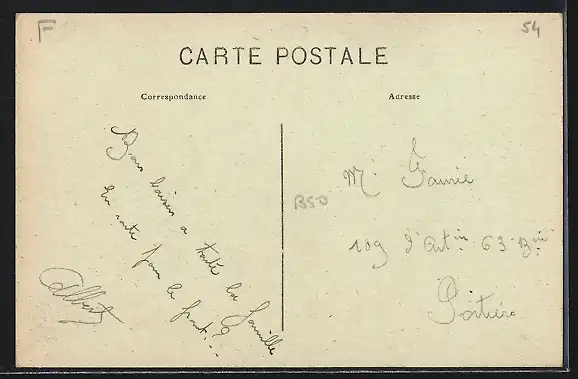 F
54
CARTE POSTALE
Correspondance
Adresse
Bons baisers a toute la famille
En route pour le front...
Albert
BSD
Mr
109 d'Artie 63 Bie
Poitiers